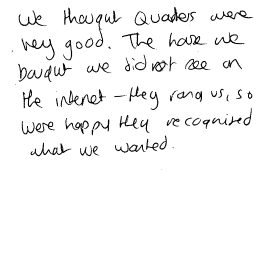 We thought Quarters were
very good. The house we
bought we did not see on
the internet - they rang us, so
were happy they recognised
what we wanted.